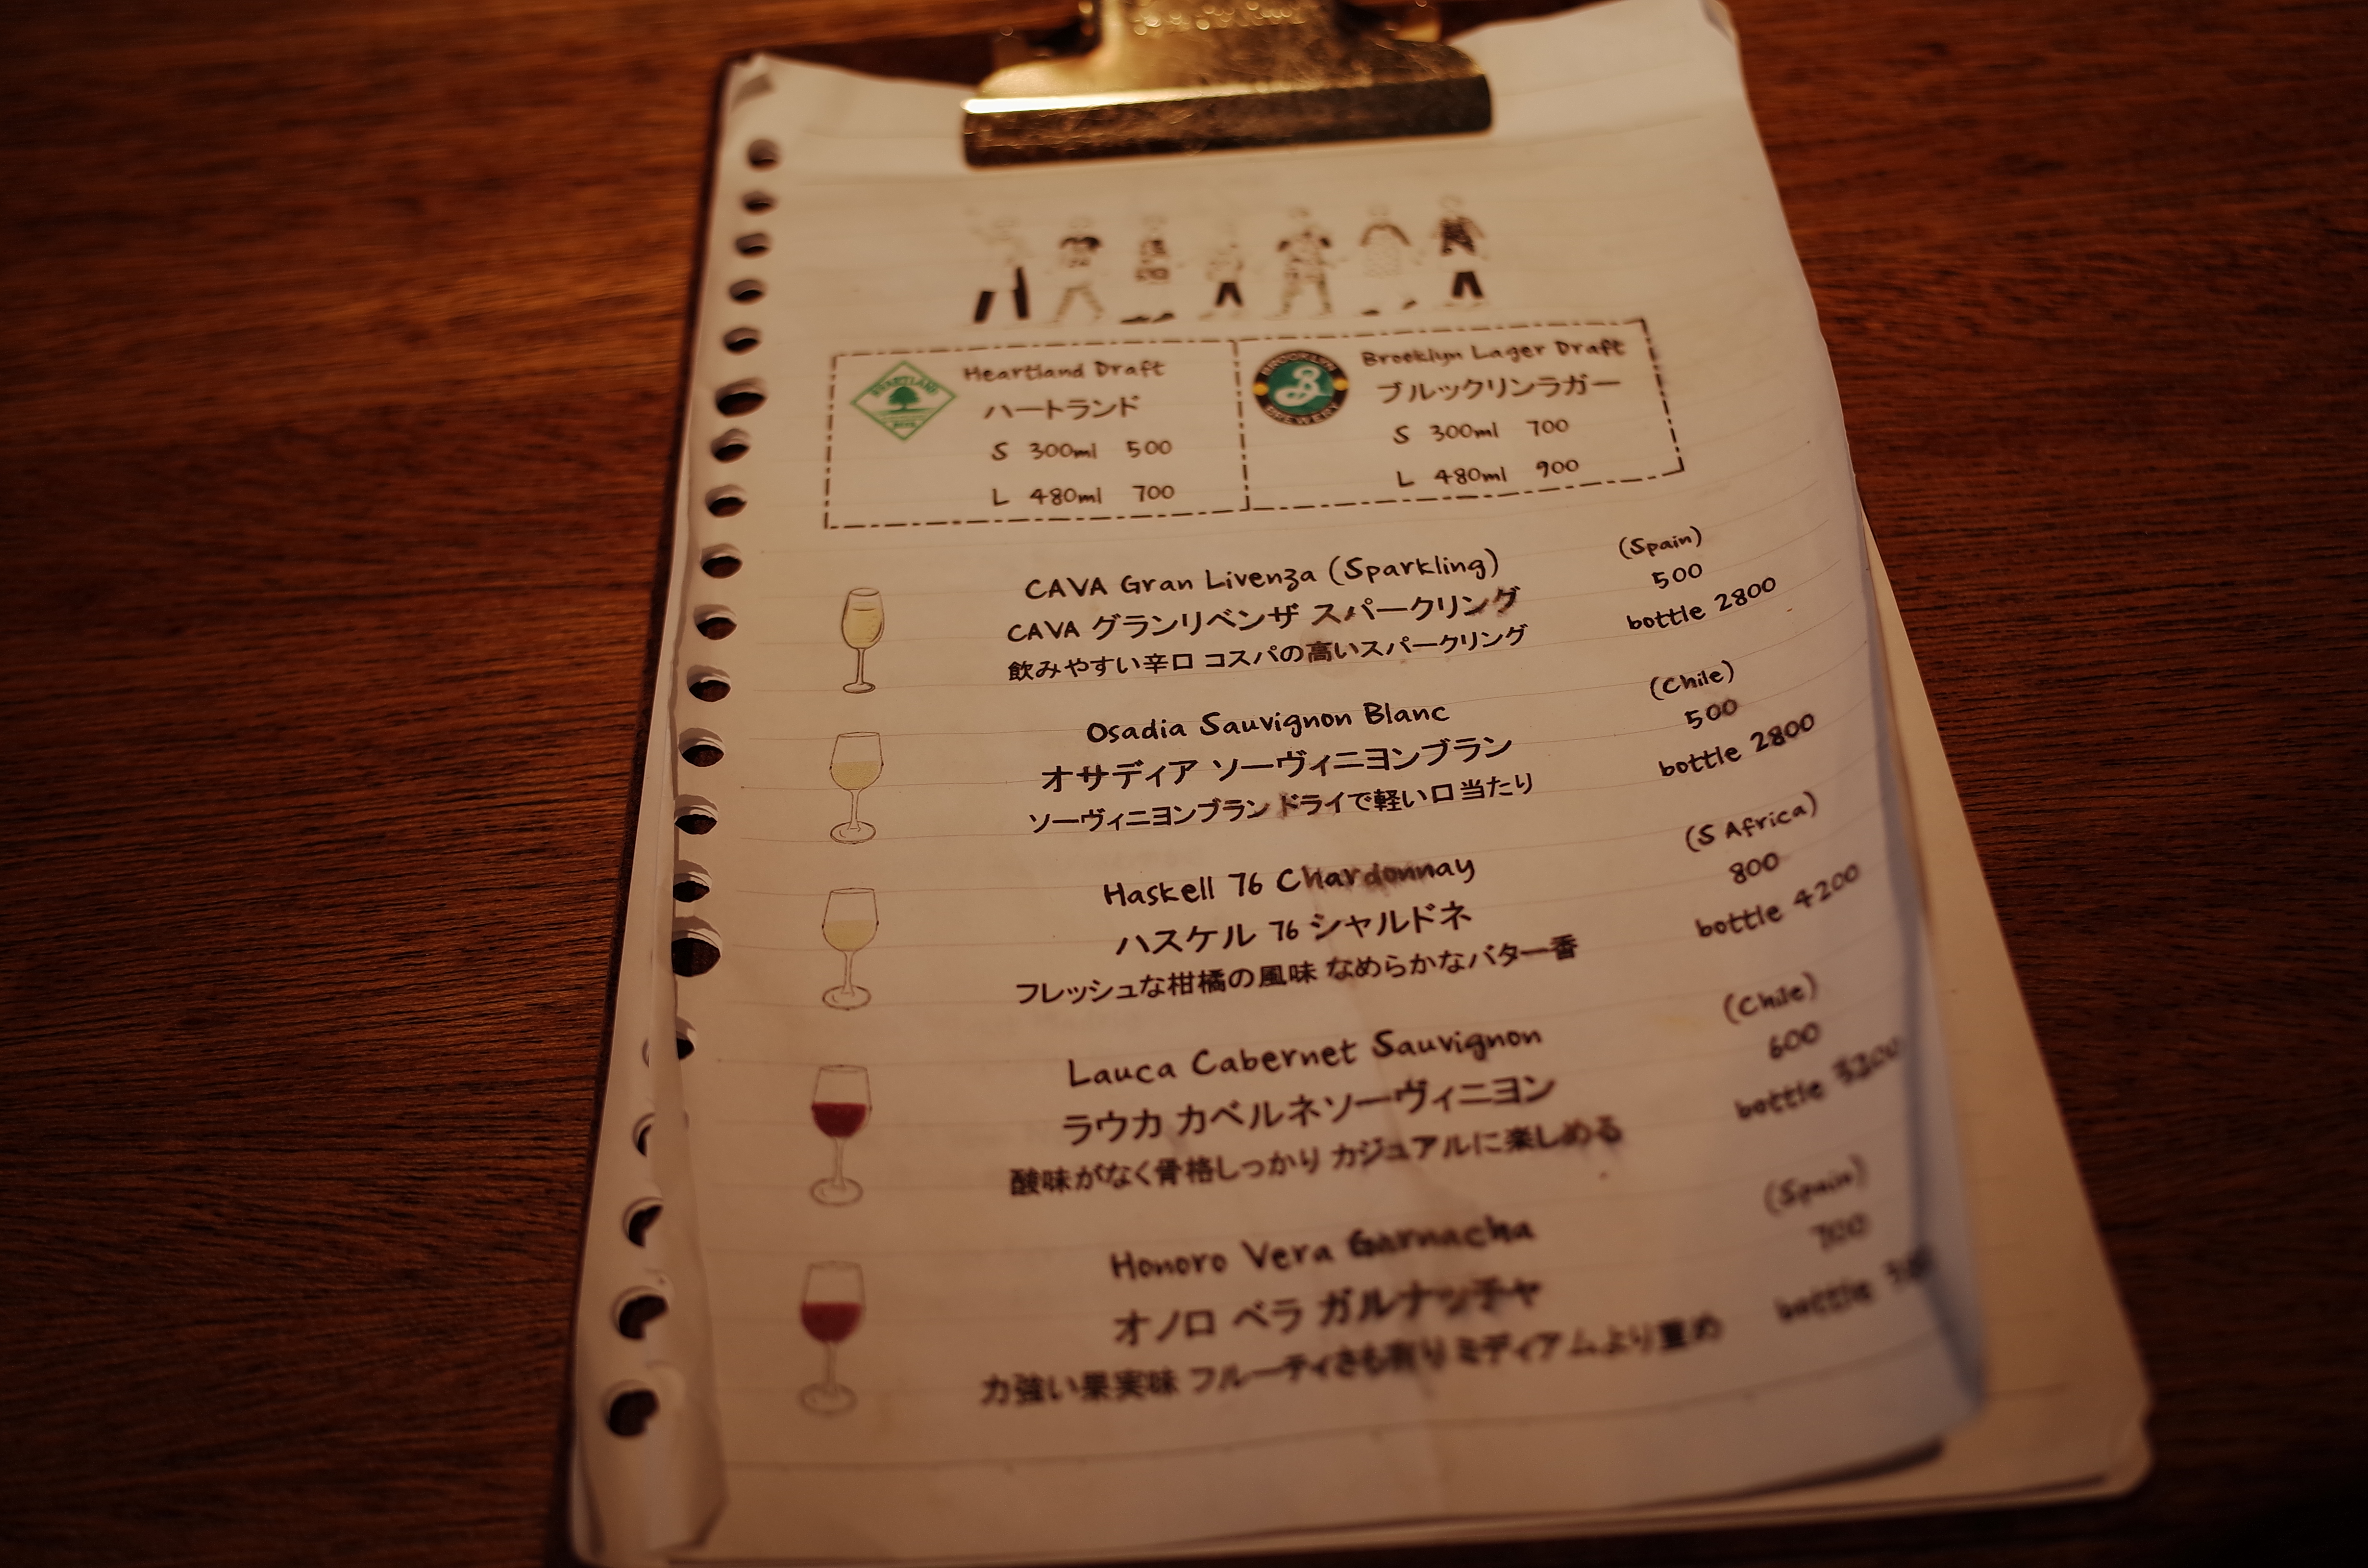 HEARTLAND
BEER
Heartland Draft
ハートランド
S 300ml 500
L 480ml 700
BROOKLYN
B
BREWERY
Brooklyn Lager Draft
ブルックリンラガー
S 300ml 700
L 480ml 900
CAVA Gran Livenza (Sparkling)
(Spain)
CAVA グランリベンザ スパークリング
500
飲みやすい辛口 コスパの高いスパークリング
bottle 2800
Osadia Sauvignon Blanc
(Chile)
オサディア ソーヴィニヨンブラン
500
ソーヴィニヨンブラン ドライで軽い口当たり
bottle 2800
Haskell 76 Chardonnay
(S Africa)
ハスケル 76 シャルドネ
800
フレッシュな柑橘の風味 なめらかなバター香
bottle 4200
Lauca Cabernet Sauvignon
(Chile)
ラウカ カベルネソーヴィニヨン
600
酸味がなく骨格しっかり カジュアルに楽しめる
bottle
Honoro Vera Garnacha
(Spain)
オノロ ベラ ガルナッチャ
700
力強い果実味 フルーティさも有り ミディアムより重め
bottle